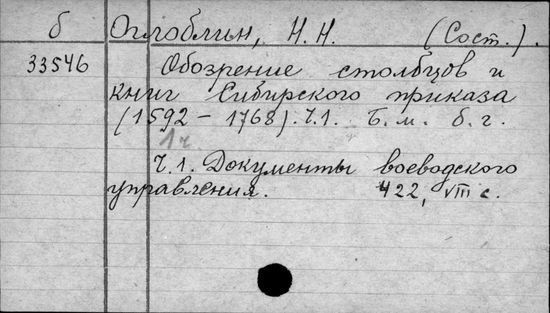 б Оглоблин, Н. Н. (Сост.).
33546 Обозрение столбцов и
книг Сибирского приказа
(1592 - 1768). Ч.1. Б. м. б. г.
1 ч.
Ч.1. Документы воеводского
управления. 422, VIII с.